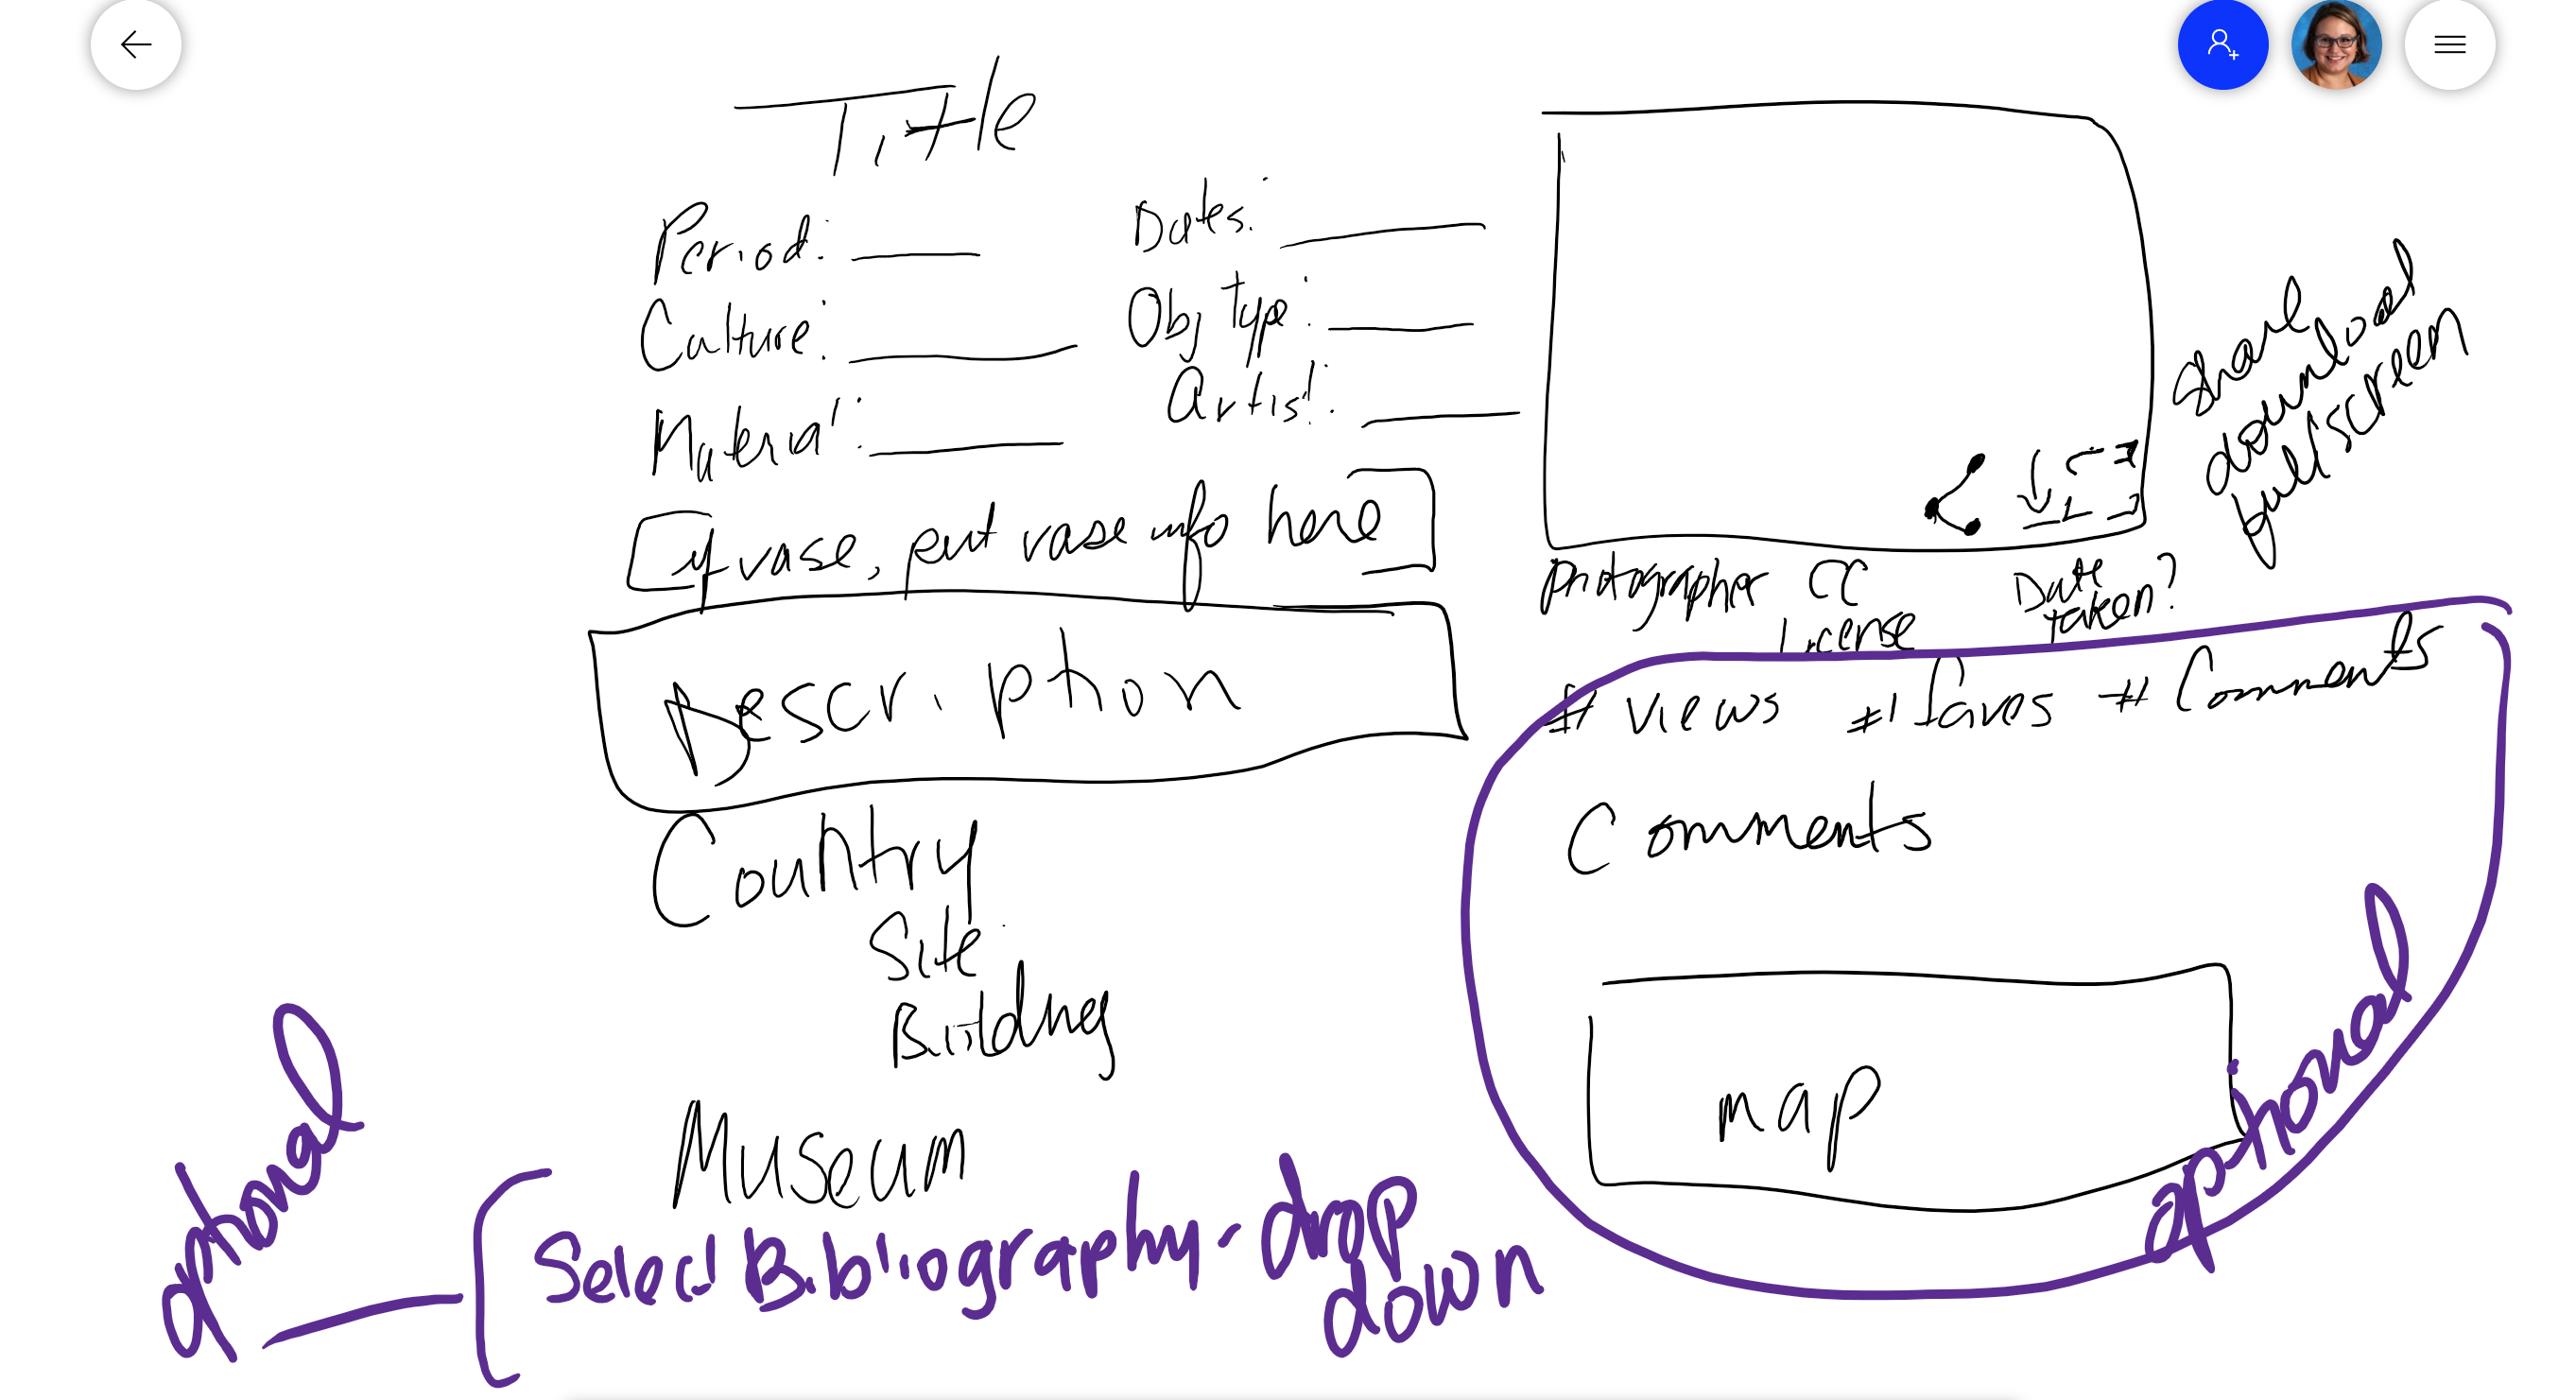 Title
Period: ____ Dates: ____
Culture: ____ Obj type: ____
Material: ____ Artist: ____
[if vase, put vase info here]
Description
Country
Site
Building
Museum
Select Bibliography - drop
down
optional
share
download
full screen
photographer CC
License
Date
taken?
# views # faves # Comments
Comments
map
optional